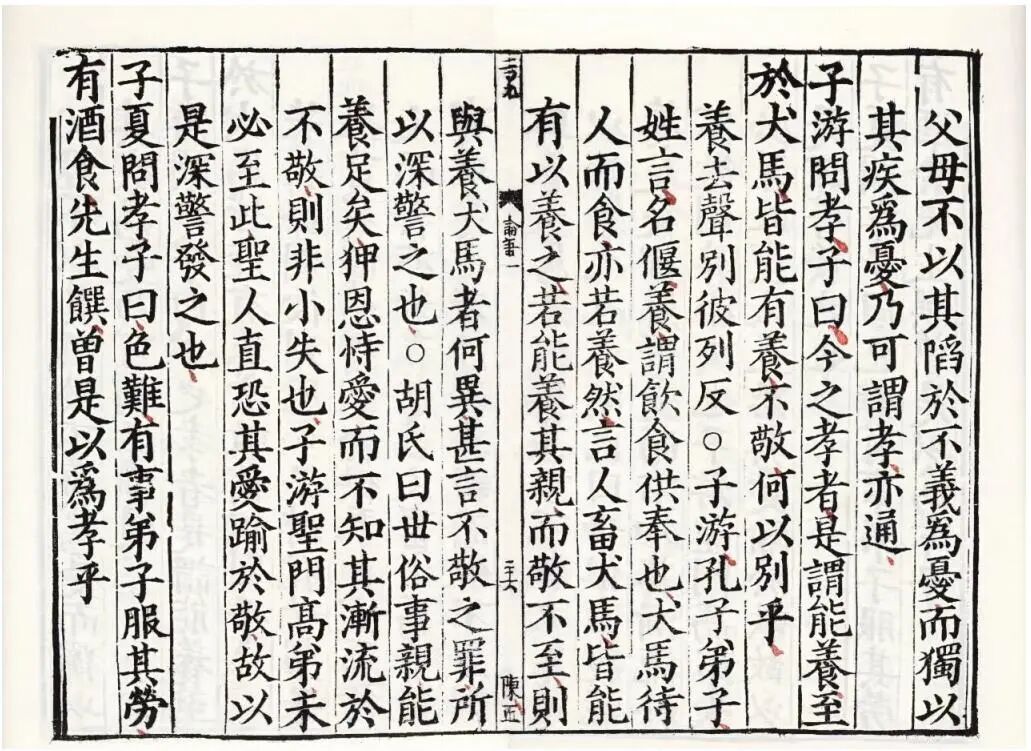 父母不以其陷於不義為憂而獨以
其疾爲憂乃可謂孝亦通
子游問孝子曰今之孝者是謂能養至
於犬馬皆能有養不敬何以別乎
養去聲別彼列反○子游孔子弟子
姓言名偃養謂飲食供奉也犬馬待
人而食亦若養然言人畜犬馬皆能
有以養之若能養其親而敬不至則
與養犬馬者何異甚言不敬之罪所
以深警之也○胡氏曰世俗事親能
養足矣狎恩恃愛而不知其漸流於
不敬則非小失也子游聖門高弟未
必至此聖人直恐其愛踰於敬故以
是深警發之也
子夏問孝子曰色難有事弟子服其勞
有酒食先生饌曾是以爲孝乎